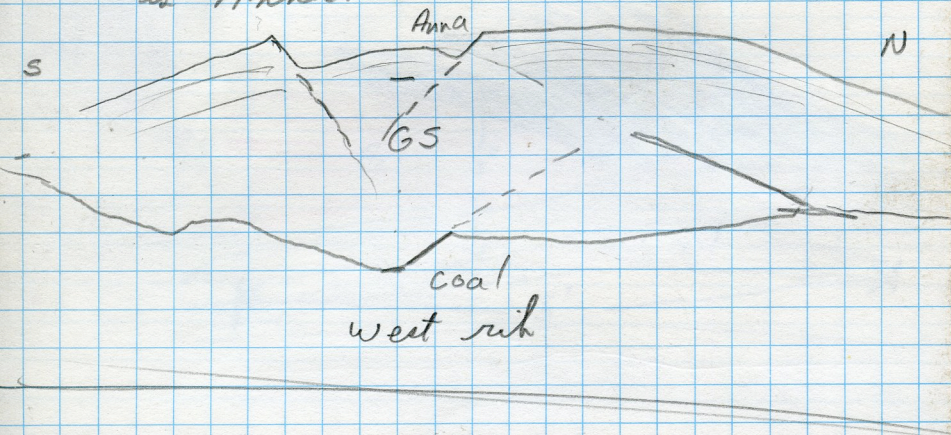 Anna
S
N
GS
coal
west rib